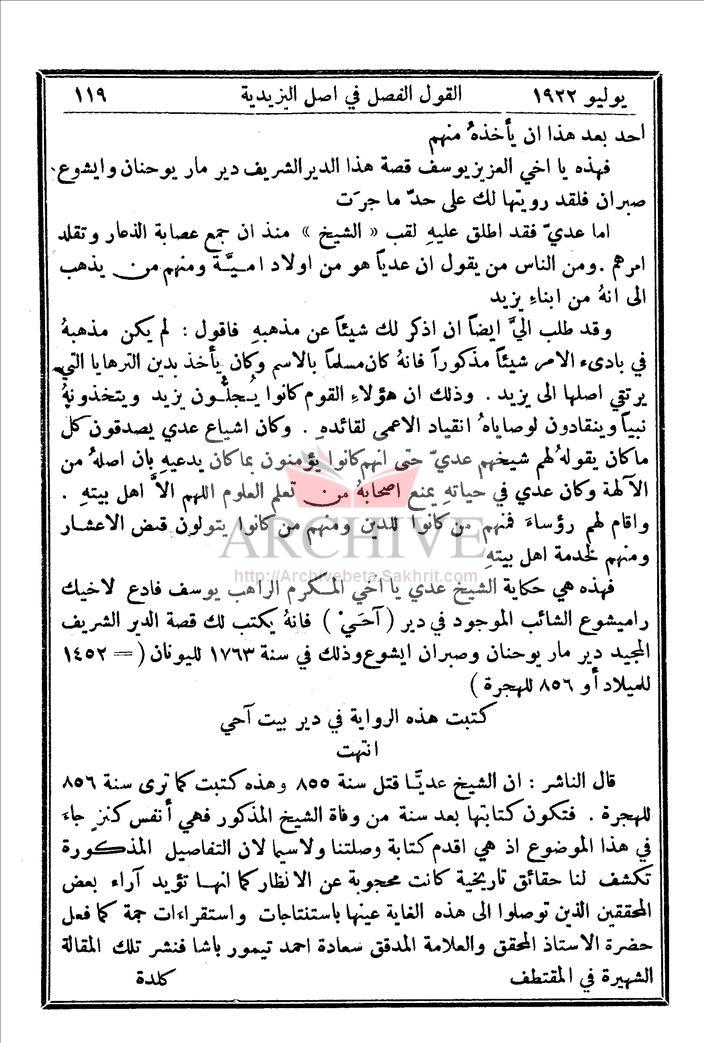 يوليو ١٩٢٢ القول الفصل في اصل اليزيدية ١١٩
احد بعد هذا ان يأخذهُ منهم
فهذه يا اخي العزيز يوسف قصة هذا الدير الشريف دير مار يوحنان وايشوع‌
صبران فلقد رويتها لك على حدّ ما جرَت
اما عديّ فقد اطلق عليهِ لقب « الشيخ » منذ ان جمع عصابة الذعار وتقلد
امرهم . ومن الناس من يقول ان عدياً هو من اولاد اميَّة ومنهم من يذهب
الى انهُ من ابناءِ يزيد
وقد طلب اليَّ ايضاً ان اذكر لك شيئاً عن مذهبهِ فاقول : لم يكن مذهبهُ
في بادىء الامر شيئاً مذكوراً فانهُ كان مسلماً بالاسم وكان يأخذ بدين الترهايا التي
يرتقي اصلها الى يزيد . وذلك ان هؤلاءِ القوم كانوا يُجلُّون يزيد ويتخذونهُ
نبياً وينقادون لوصاياهُ انقياد الاعمى لقائدهِ . وكان اشياع عدي يصدقون كل
ما كان يقولهُ لهم شيخهم عديّ حتى انهم كانوا يؤمنون بما كان يدعيهِ بان اصلهُ من
الآلهة وكان عدي في حياتهِ يمنع اصحابهُ من تعلم العلوم اللهم الاَّ اهل بيتهِ .
واقام لهم رؤساءَ فمنهم من كانوا للدين ومنهم من كانوا يتولون قبض الاعشار
ومنهم لخدمة اهل بيتهِ
ARCHIVE
http://Archivebeta.Sakhrit.com
فهذه هي حكاية الشيخ عدي يا اخي المكرم الراهب يوسف فادع لاخيك
راميشوع الشائب الموجود في دير ( آحَيْ ) فانهُ يكتب لك قصة الدير الشريف
المجيد دير مار يوحنان وصبران ايشوع وذلك في سنة ١٧٦٣ لليونان (= ١٤٥٢
للميلاد أو ٨٥٦ للهجرة )
كتبت هذه الرواية في دير بيت آحي
انتهت
قال الناشر : ان الشيخ عديًّا قتل سنة ٨٥٥ وهذه كتبت كما ترى سنة ٨٥٦
للهجرة . فتكون كتابتها بعد سنة من وفاة الشيخ المذكور فهي أنفس كنزٍ جاءَ
في هذا الموضوع اذ هي اقدم كتابة وصلتنا ولاسيما لان التفاصيل المذكورة
تكشف لنا حقائق تاريخية كانت محجوبة عن الانظار كما انها تؤيد آراء بعض
المحققين الذين توصلوا الى هذه الغاية عينها باستنتاجات واستقراءات جمة كما فعل
حضرة الاستاذ المحقق والعلامة المدقق سعادة احمد تيمور باشا فنشر تلك المقالة
الشهيرة في المقتطف كلدة